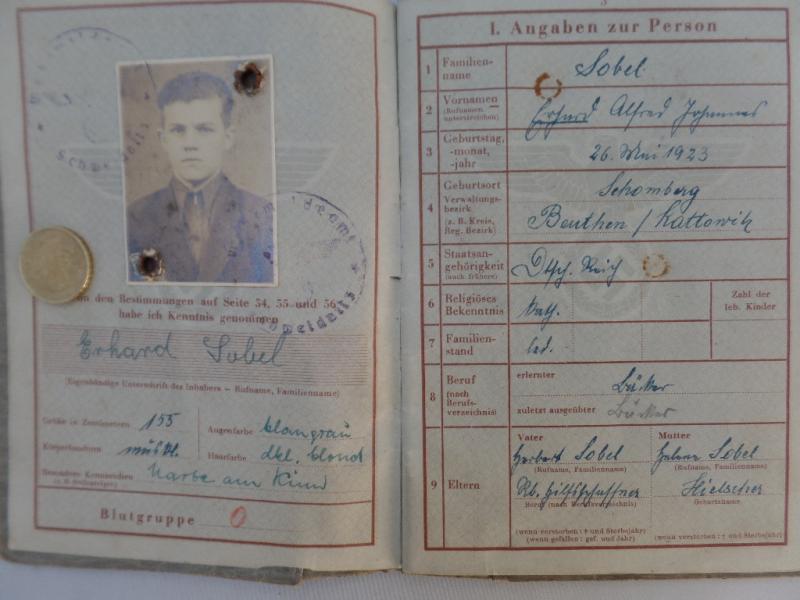 Schweidnitz
Wehrmeldeamt
Schweidnitz
von den Bestimmungen auf Seite 54, 55 und 56
habe ich Kenntnis genommen
Erhard Sobel
(Eigenhändige Unterschrift des Inhabers — Rufname, Familienname)
Größe in Zentimetern 155
Augenfarbe blaugrau
Körperform
Haarfarbe dkl. blond
Besondere Kennzeichen Narbe am Kinn
Blutgruppe O
3
I. Angaben zur Person
1 Familien-
name
Sobel
2 Vornamen
(Rufnamen
unterstreichen)
Erhard Alfred Johannes
3 Geburtstag,
-monat,
-jahr
26. Mai 1923
4 Geburtsort
Verwaltungs-
bezirk
(z. B. Kreis,
Reg. Bezirk)
Schomberg
Beuthen / Kattowitz
5 Staatsan-
gehörigkeit
(auch frühere)
Dtsch. Reich
6 Religiöses
Bekenntnis
kath.
Zahl der
leb. Kinder
7 Familien-
stand
led.
8 Beruf
(nach
Berufs-
verzeichnis)
erlernter
Bäcker
zuletzt ausgeübter Bäcker
9 Eltern
Vater
Herbert Sobel
(Rufname, Familienname)
Rb. Hilfsschaffner
Beruf (nach Berufsverzeichnis)
(wenn verstorben: † und Sterbejahr)
(wenn gefallen: gef. und Jahr)
Mutter
Helene Sobel
(Rufname, Familienname)
Hielscher
Geburtsname
(wenn verstorben: † und Sterbejahr)